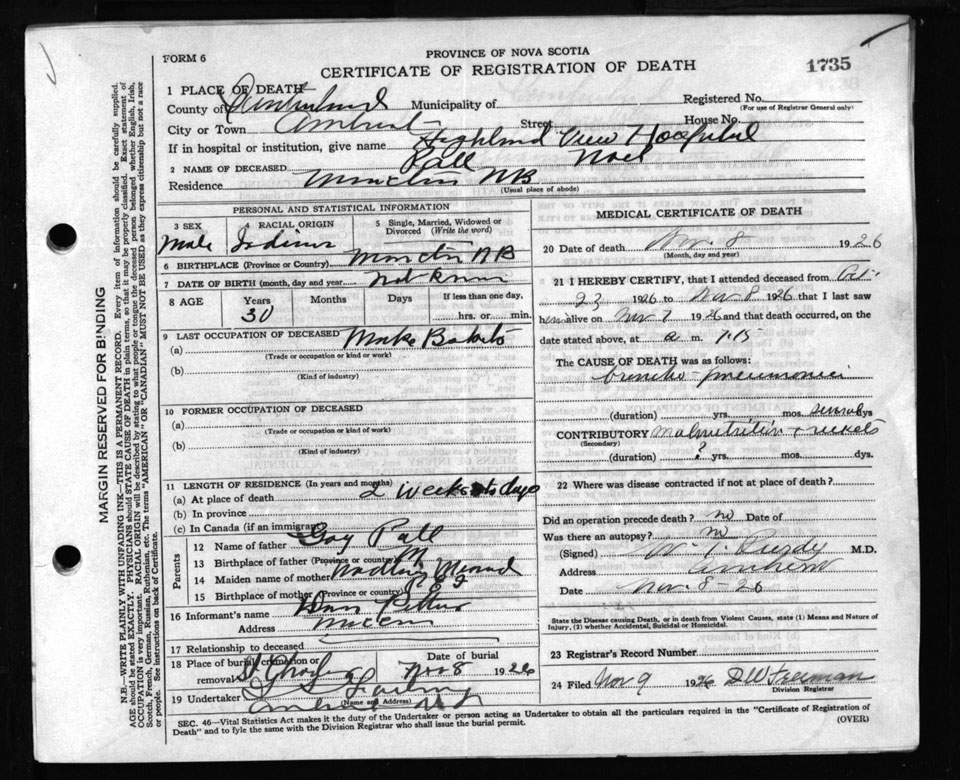 FORM 6
PROVINCE OF NOVA SCOTIA
CERTIFICATE OF REGISTRATION OF DEATH
1735
1 PLACE OF DEATH
County of Cumberland Municipality of Registered No.
(For use of Registrar General only)
City or Town Amherst Street House No.
If in hospital or institution, give name Highland View Hospital
2 NAME OF DECEASED Pall Noel
Residence Moncton NB
(Usual place of abode)
PERSONAL AND STATISTICAL INFORMATION
3 SEX 4 RACIAL ORIGIN 5 Single, Married, Widowed or Divorced (Write the word)
Male Indian
6 BIRTHPLACE (Province or Country) Moncton NB
7 DATE OF BIRTH (month, day and year) Not Known
8 AGE Years Months Days If less than one day,
30 hrs. or min.
9 LAST OCCUPATION OF DECEASED
(a) Make Baskets
(Trade or occupation or kind or work)
(b)
(Kind of industry)
10 FORMER OCCUPATION OF DECEASED
(a)
(Trade or occupation or kind or work)
(b)
(Kind of industry)
11 LENGTH OF RESIDENCE (In years and months)
(a) At place of death 2 weeks days
(b) In province
(c) In Canada (if an immigrant)
Parents
12 Name of father Pall
13 Birthplace of father (Province or country)
14 Maiden name of mother
15 Birthplace of mother (Province or country)
16 Informant's name
Address
17 Relationship to deceased
18 Place of burial, cremation or removal Date of burial
Nov 8 1926
19 Undertaker
(Name and Address)
MEDICAL CERTIFICATE OF DEATH
20 Date of death Nov. 8 1926
(Month, day and year)
21 I HEREBY CERTIFY, that I attended deceased from Oct.
23 1926 to Nov 8 1926 that I last saw
him alive on Nov 7 1926 and that death occurred, on the
date stated above, at a m. 7.15
The CAUSE OF DEATH was as follows:
broncho-pneumonia
(duration) yrs. mos. several dys
CONTRIBUTORY malnutrition + rickets
(Secondary)
(duration) ? yrs. mos. dys.
22 Where was disease contracted if not at place of death?
Did an operation precede death? no Date of
Was there an autopsy? no
(Signed) W. T. Purdy M.D.
Address Amherst
Date Nov. 8-26
State the Disease causing Death, or in death from Violent Causes, state (1) Means and Nature of
Injury, (2) whether Accidental, Suicidal or Homicidal.
23 Registrar's Record Number
24 Filed Nov 9 1926 DW Freeman
Division Registrar
SEC. 46—Vital Statistics Act makes it the duty of the Undertaker or person acting as Undertaker to obtain all the particulars required in the "Certificate of Registration of
Death" and to fyle the same with the Division Registrar who shall issue the burial permit.
(OVER)
MARGIN RESERVED FOR BINDING
N.B.—WRITE PLAINLY WITH UNFADING INK—THIS IS A PERMANENT RECORD. Every item of information should be carefully supplied.
AGE should be stated EXACTLY. PHYSICIANS should STATE CAUSE OF DEATH in plain terms, so that it may be properly classified. Exact statement of
OCCUPATION is very important. RACIAL ORIGIN will be described by stating to what people or tongue the deceased person belonged whether English, Irish,
Scotch, French, German, Russian, Ruthenian, etc. The terms "AMERICAN" OR "CANADIAN" MUST NOT BE USED as they express citizenship but not a race
or people. See instructions on back of Certificate.